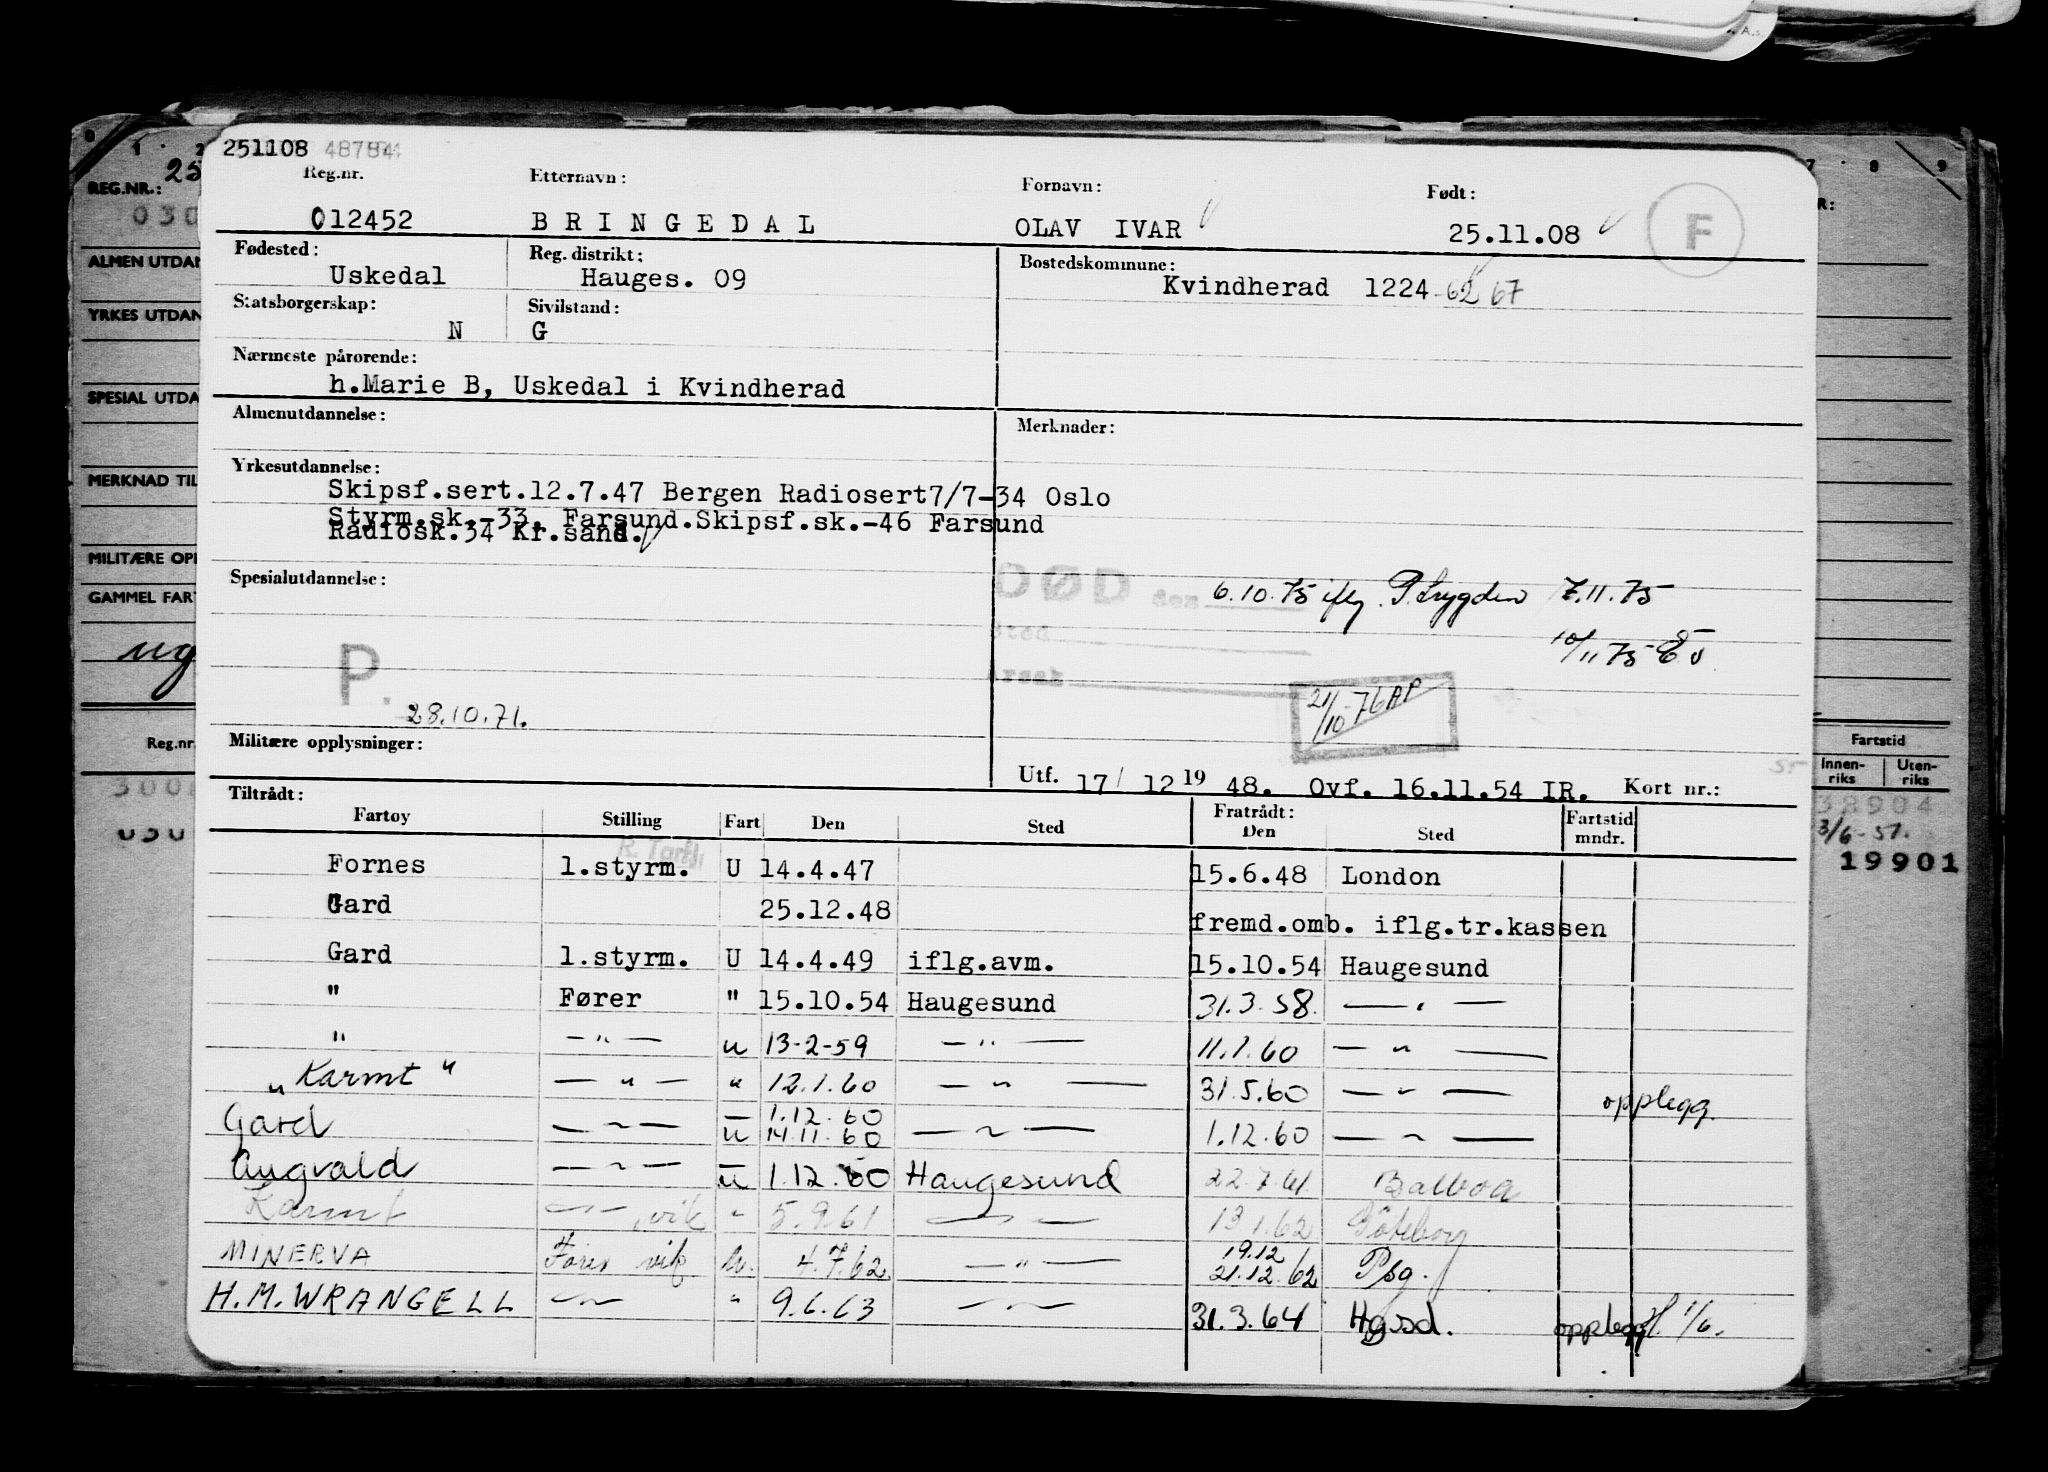 251108 48784
Reg.nr. Etternavn: Fornavn: Født:
012452 BRINGEDAL OLAV IVAR 25.11.08 F
Fødested: Reg. distrikt: Bostedskommune:
Uskedal Hauges. 09 Kvindherad 1224 - 62 67
Statsborgerskap: Sivilstand:
N G
Nærmeste pårørende:
h.Marie B, Uskedal i Kvindherad
Almenutdannelse: Merknader:
Yrkesutdannelse:
Skipsf.sert.12.7.47 Bergen Radiosert7/7-34 Oslo
Styrm.sk.-33. Farsund.Skipsf.sk.-46 Farsund
Radiosk.34 Kr.sand.
Spesialutdannelse:
DØD den 6.10.75 iflg. P.trygden 7.11.75
sted 10/11 75
årsak
P. 21/10-76 AP
28.10.71.
Militære opplysninger:
Utf. 17/ 12 19 48. Ovf. 16.11.54 IR. Kort nr.:
Tiltrådt: Fratrådt:
Fartøy Stilling Fart Den Sted Den Sted Fartstid mndr.
Fornes 1.styrm. U 14.4.47 15.6.48 London
Gard 25.12.48 fremd.omb. iflg.tr.kassen
Gard 1.styrm. U 14.4.49 iflg.avm. 15.10.54 Haugesund
" Fører " 15.10.54 Haugesund 31.3.58. — " —
" — " — u 13-2-59 — " — 11.1.60 — " —
"Karmt" — " — " 12.1.60 — " — 31.5.60 — " — opplegg.
1.12.60
Gard — " — u 14.11.60 — " — 1.12.60 — " —
Augvald — " — u 1.12.60 Haugesund 22.7.61. Balboa
Karmt — " — , vik " 5.9.61 — " — 13.1.62 Göteborg
19.12
MINERVA Fører vik u. 4.7.62 — " — 21.12.62 Psg.
H.M.WRANGELL — " — " 9.6.63 — " — 31.3.64 Hgsd. opplegg 1/6.
REG.NR.: 25
030
ALMEN UTDAN
YRKES UTDAN
SPESIAL UTDA
MERKNAD TIL
MILITÆRE OPP
GAMMEL FART
ug
Reg.nr.
300
030
7 8 9
R:
Fartstid
Innen-riks Uten-riks
38904
3/6-51.
19901